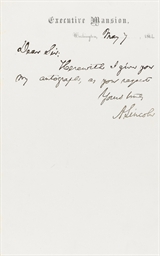 Executive Mansion,
Washington, May 7, 186
Dear Sir,
Herewith I give you
my autograph, as you request
Yours truly,
A. Lincoln